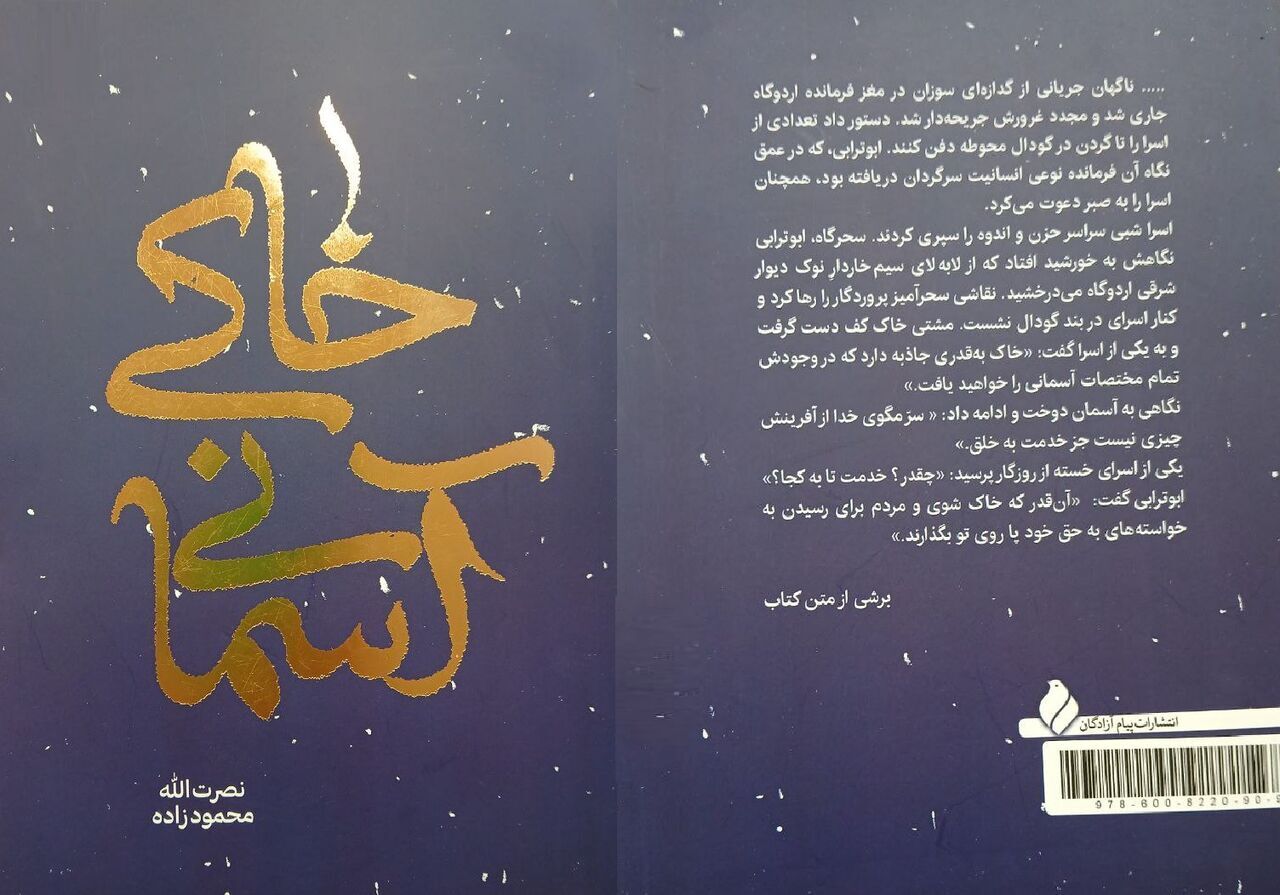 خاکی
آسمانی
نصرت الله
محمودزاده
..... ناگهان جریانی از گدازه‌ای سوزان در مغز فرمانده اردوگاه
جاری شد و مجدد غرورش جریحه‌دار شد. دستور داد تعدادی از
اسرا را تا گردن در گودال محوطه دفن کنند. ابوترابی، که در عمق
نگاه آن فرمانده نوعی انسانیت سرگردان دریافته بود، همچنان
اسرا را به صبر دعوت می‌کرد.
اسرا شبی سراسر حزن و اندوه را سپری کردند. سحرگاه، ابوترابی
نگاهش به خورشید افتاد که از لابه‌لای سیم خاردارِ نوک دیوار
شرقی اردوگاه می‌درخشید. نقاشی سحرآمیز پروردگار را رها کرد و
کنار اسرای در بند گودال نشست. مشتی خاک کف دست گرفت
و به یکی از اسرا گفت: «خاک به‌قدری جاذبه دارد که در وجودش
تمام مختصات آسمانی را خواهید یافت.»
نگاهی به آسمان دوخت و ادامه داد: « سرّ مگوی خدا از آفرینش
چیزی نیست جز خدمت به خلق.»
یکی از اسرای خسته از روزگار پرسید: «چقدر؟ خدمت تا به کجا؟»
ابوترابی گفت: «آن‌قدر که خاک شوی و مردم برای رسیدن به
خواسته‌های به حق خود پا روی تو بگذارند.»
برشی از متن کتاب
انتشارات پیام آزادگان
978-600-8220-90-9